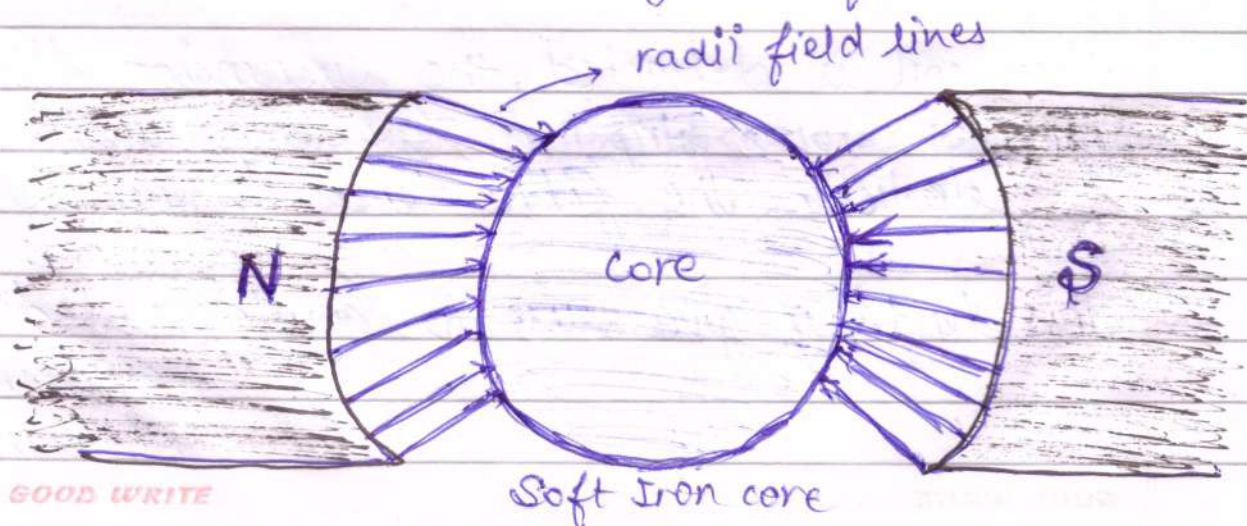 radii field lines
N
core
S
GOOD WRITE
Soft Iron core